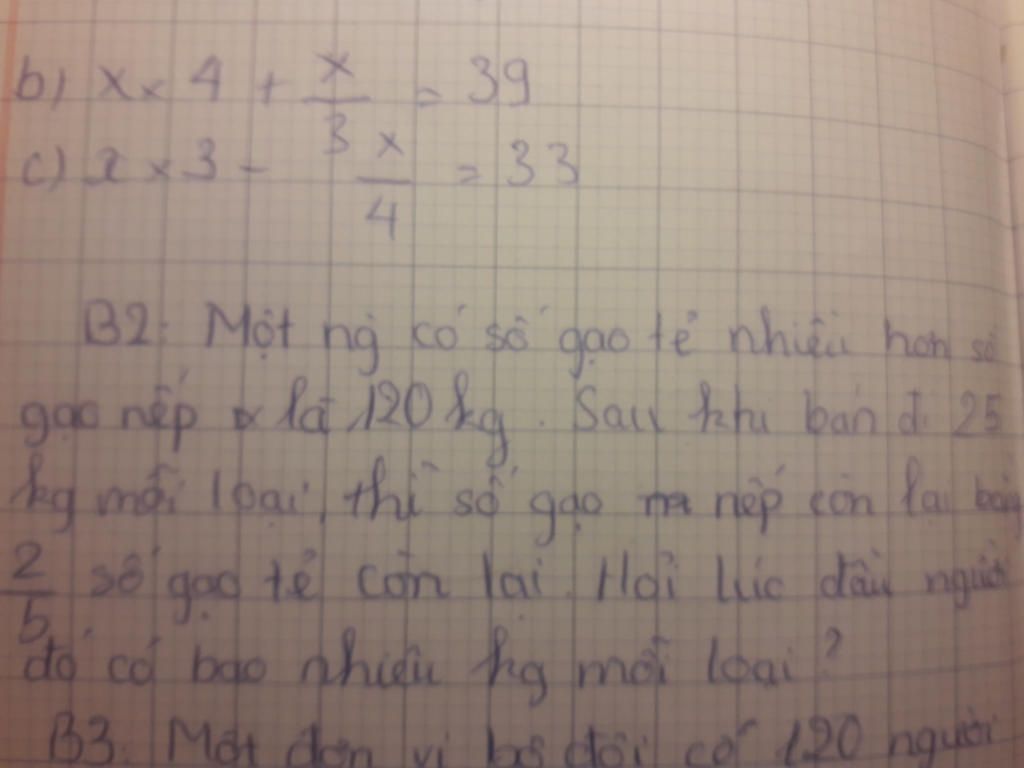 b) x × 4 + x/3 = 39
c) x × 3 - x/4 = 33
B2: Một ng có số gạo tẻ nhiều hơn số
gạo nếp là 120 kg. Sau khi bán đi 25
kg mỗi loại, thì số gạo nếp còn lại bằng
2/5 số gạo tẻ còn lại. Hỏi lúc đầu người
đó có bao nhiêu kg mỗi loại?
B3: Một đơn vị bộ đội có 120 người